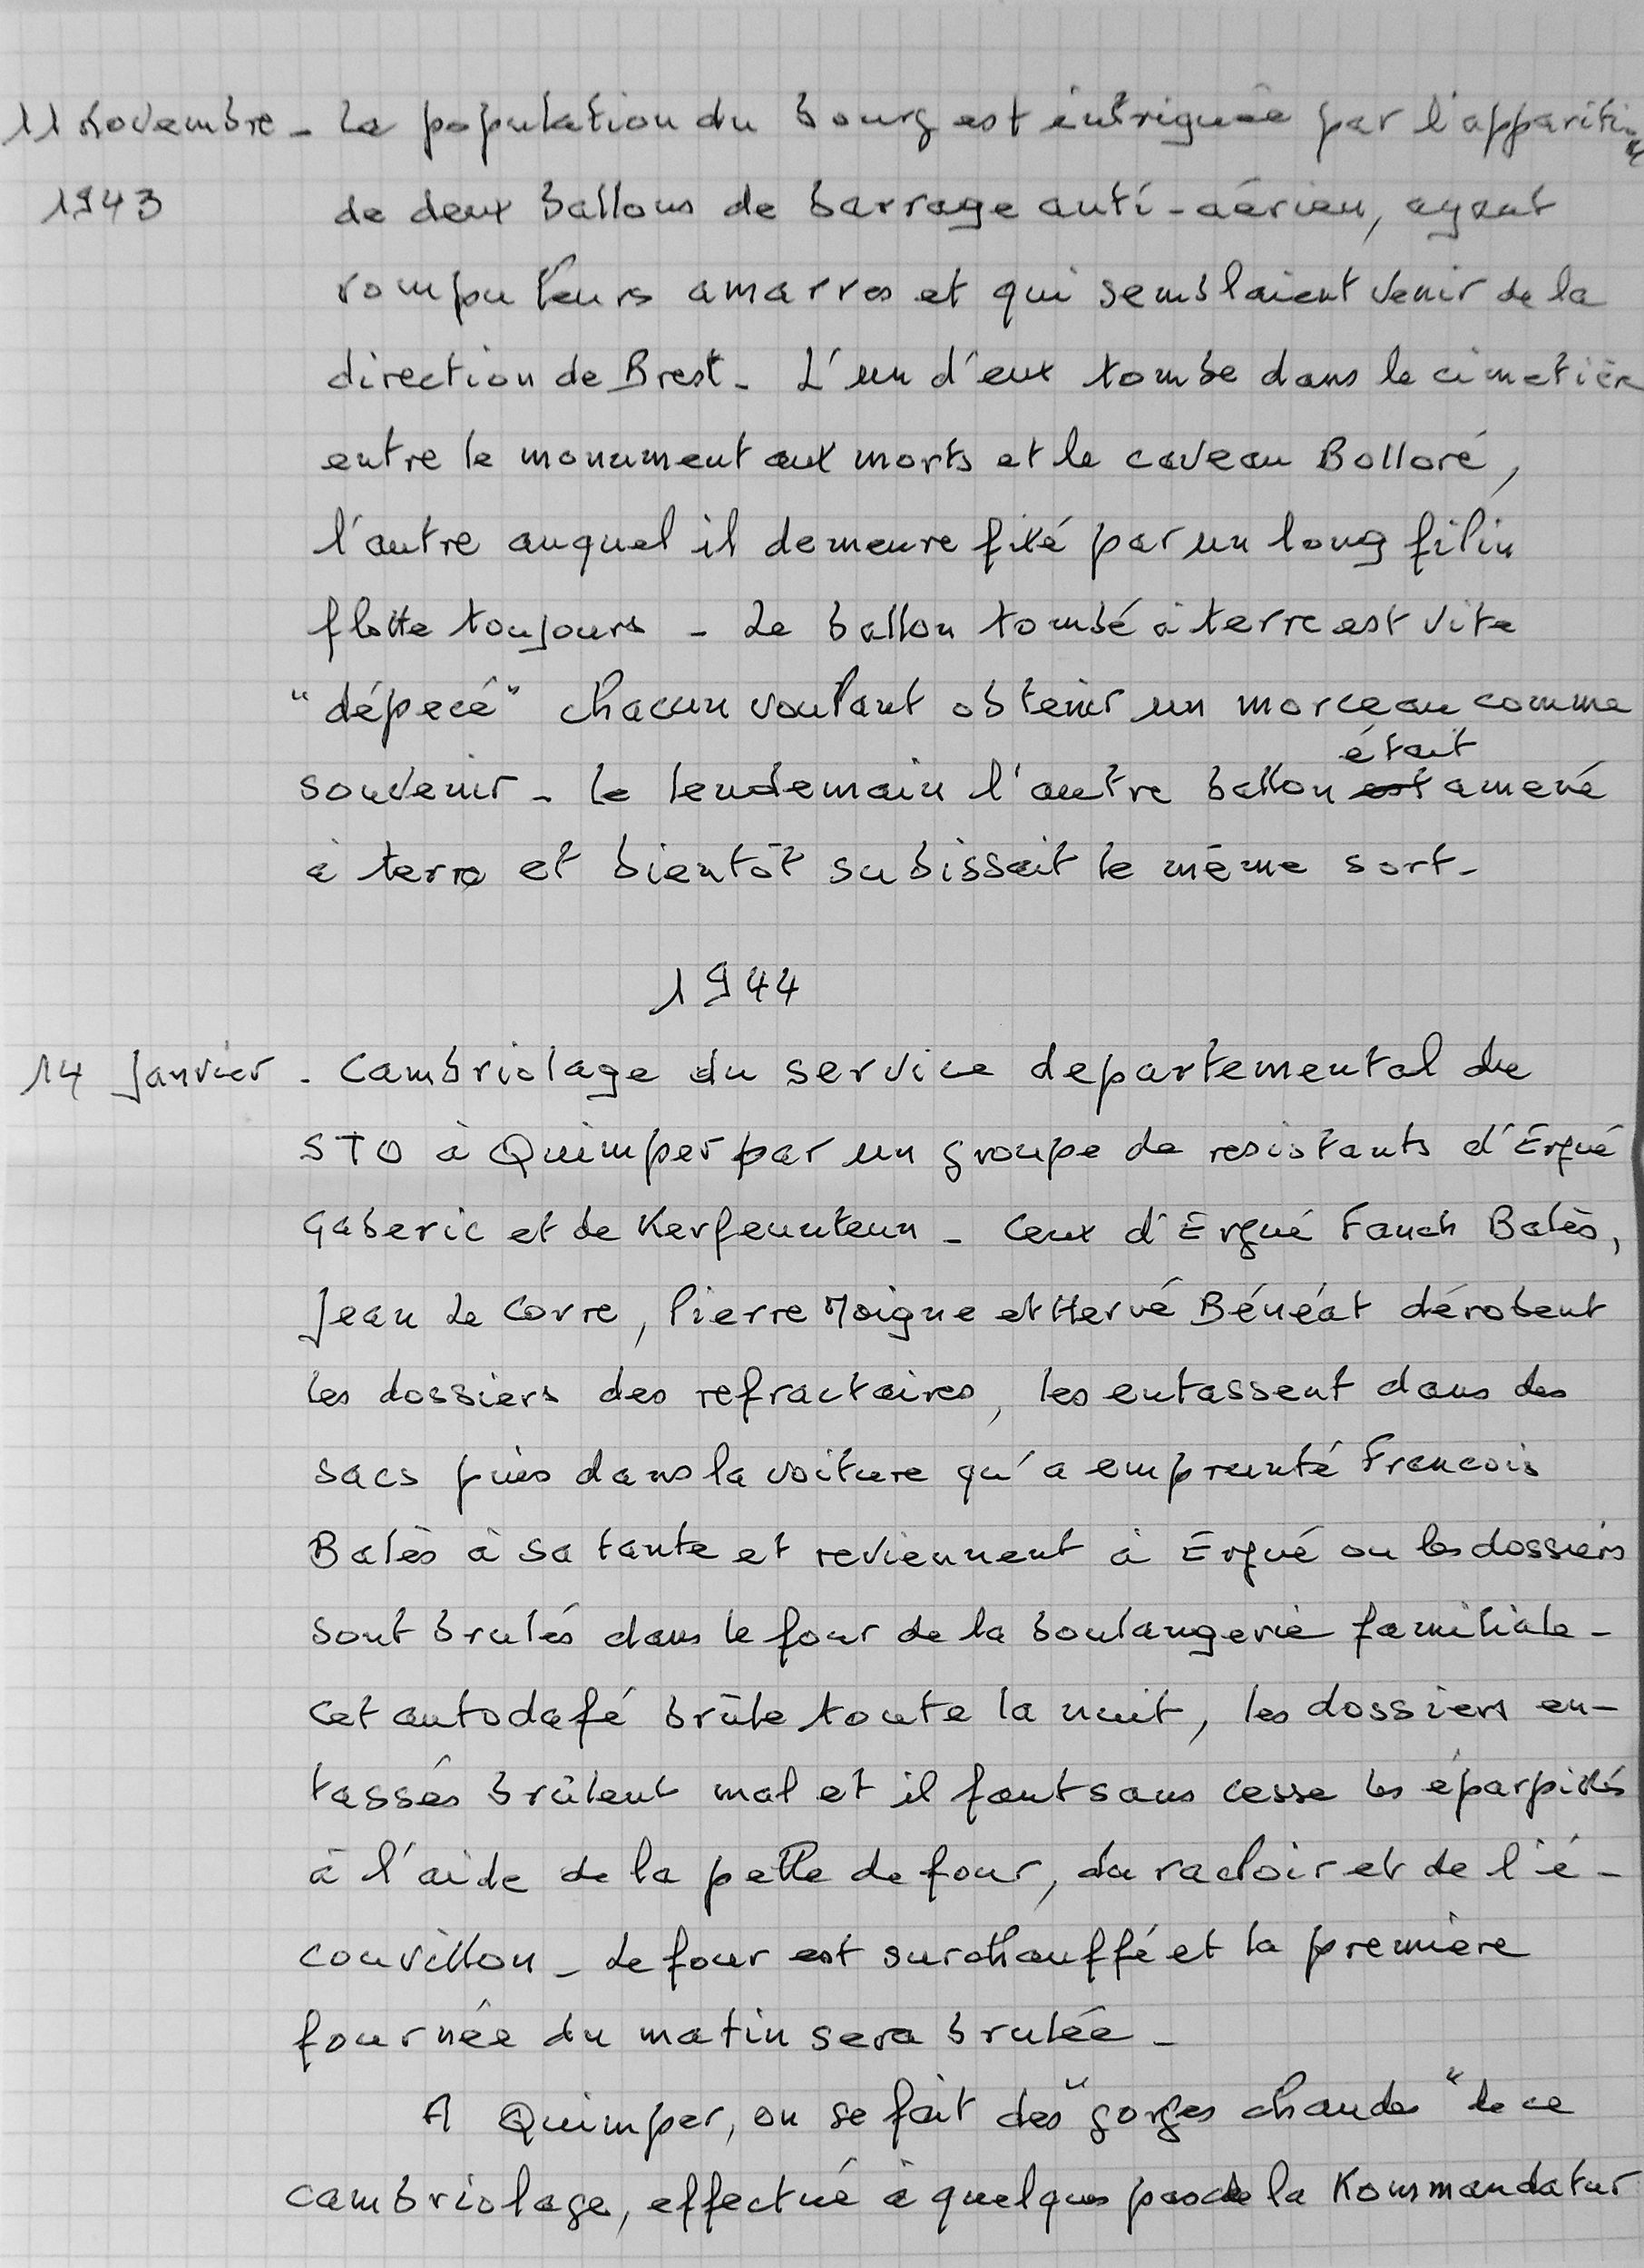 11 novembre - La population du bourg est intriguée par l'apparition
1943 de deux ballons de barrage anti-aérien, ayant
rompu leurs amarres et qui semblaient venir de la
direction de Brest - L'un d'eux tombe dans le cimetière
entre le monument aux morts et le caveau Bolloré,
l'autre auquel il demeure fixé par un long filin
flotte toujours - Le ballon tombé à terre est vite
"dépecé" chacun voulant obtenir un morceau comme
souvenir - le lendemain l'autre ballon était amené
à terre et bientôt subissait le même sort -
1944
14 Janvier - Cambriolage du service departemental du
STO à Quimper par un groupe de resistants d'Ergué
Gaberic et de Kerfeunteun - Ceux d'Ergué Fanch Balès,
Jean Le Corre, Pierre Moigne et Hervé Bénéat dérobent
les dossiers des refractaires, les entassent dans des
sacs puis dans la voiture qu'a emprunté Francois
Balès à sa tante et reviennent à Ergué ou les dossiers
sont brulés dans le four de la boulangerie familiale -
Cet autodafé brûle toute la nuit, les dossiers en-
tassés brûlent mal et il faut sans cesse les éparpillés
à l'aide de la pelle de four, du racloir et de l'é-
couvillon - Le four est surchauffé et la première
fournée du matin sera brulée -
A Quimper, on se fait des "gorges chaudes" de ce
cambriolage, effectué à quelques pas de la Kommandatur